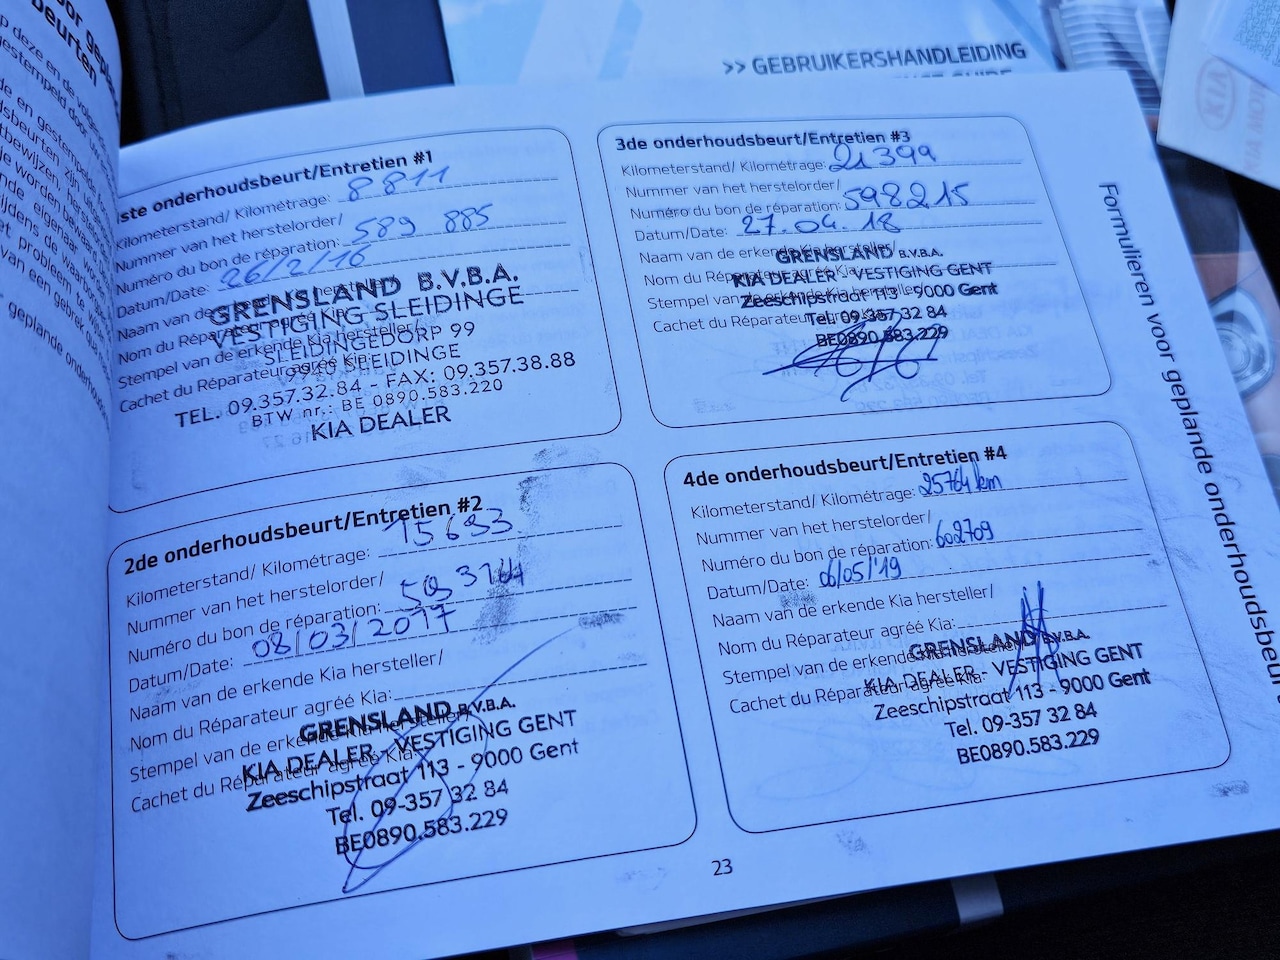 >> GEBRUIKERSHANDLEIDING
KIA
1ste onderhoudsbeurt/Entretien #1
Kilometerstand/ Kilométrage: 8811
Nummer van het herstelorder/
Numéro du bon de réparation: 589 885
Datum/Date: 26/2/16
Naam van de
Nom du Réparateur agréé Kia:
Stempel van de erkende Kia hersteller/
Cachet du Réparateur agréé Kia:
GRENSLAND B.V.B.A.
VESTIGING SLEIDINGE
SLEIDINGEDORP 99
9940 SLEIDINGE
TEL. 09.357.32.84 - FAX: 09.357.38.88
BTW nr.: BE 0890.583.220
KIA DEALER
2de onderhoudsbeurt/Entretien #2
Kilometerstand/ Kilométrage: 15693
Nummer van het herstelorder/
Numéro du bon de réparation:
Datum/Date: 08/03/2017
Naam van de erkende Kia hersteller/
Nom du Réparateur agréé Kia:
Stempel van de erkende Kia hersteller/
Cachet du Réparateur agréé Kia:
GRENSLAND B.V.B.A.
KIA DEALER - VESTIGING GENT
Zeeschipstraat 113 - 9000 Gent
Tel. 09-357 32 84
BE0890.583.229
3de onderhoudsbeurt/Entretien #3
Kilometerstand/ Kilométrage: 21399
Nummer van het herstelorder/
Numéro du bon de réparation: 598215
Datum/Date: 27.04.18
Naam van de erkende Kia hersteller/
Nom du Réparateur agréé Kia:
Stempel van de erkende Kia hersteller/
Cachet du Réparateur agréé Kia:
GRENSLAND B.V.B.A.
KIA DEALER - VESTIGING GENT
Zeeschipstraat 113 - 9000 Gent
Tel. 09-357 32 84
BE0890.583.229
4de onderhoudsbeurt/Entretien #4
Kilometerstand/ Kilométrage: 25764 km
Nummer van het herstelorder/
Numéro du bon de réparation: 602709
Datum/Date: 06/05/'19
Naam van de erkende Kia hersteller/
Nom du Réparateur agréé Kia:
Stempel van de erkende Kia hersteller/
Cachet du Réparateur agréé Kia:
GRENSLAND B.V.B.A.
KIA DEALER - VESTIGING GENT
Zeeschipstraat 113 - 9000 Gent
Tel. 09-357 32 84
BE0890.583.229
Formulieren voor geplande onderhoudsbeur
23